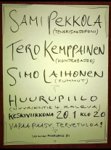 SAMI PEKKOLA
(TENORISAKSOFONI)
TERO KEMPPAINEN
(KONTRABASSO)
SIMO LAIHONEN
(RUMMUT)
HUURUPIILO
KESKIVIIKKONA 20.1 KLO 20
VAPAA PÄÄSY TERVETULOA!